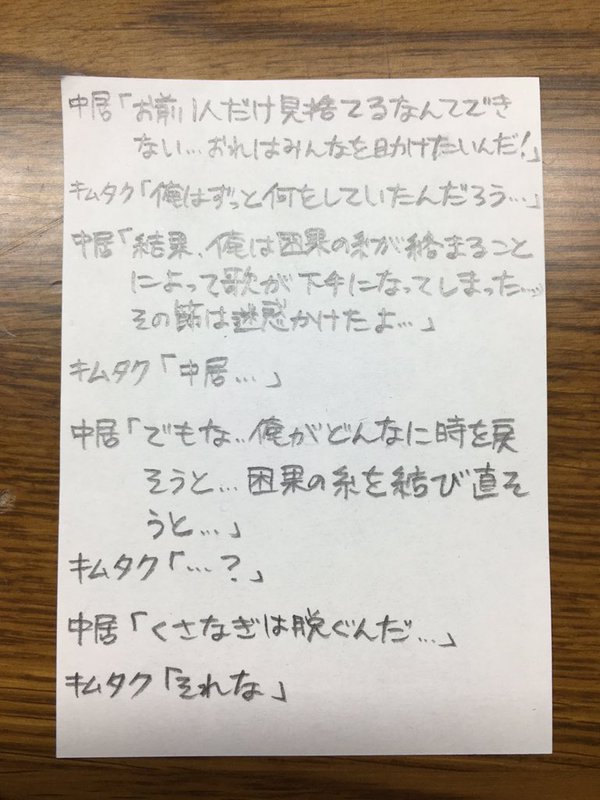 中居「お前1人だけ見捨てるなんてでき
ない…おれはみんなを助けたいんだ!」
キムタク「俺はずっと何をしていたんだろう…」
中居「結果、俺は因果の糸が絡まること
によって歌が下手になってしまった…
その節は迷惑かけたよ…」
キムタク「中居…」
中居「でもな..俺がどんなに時を戻
そうと…因果の糸を結び直そ
うと…」
キムタク「…?」
中居「くさなぎは脱ぐんだ…」
キムタク「それな」